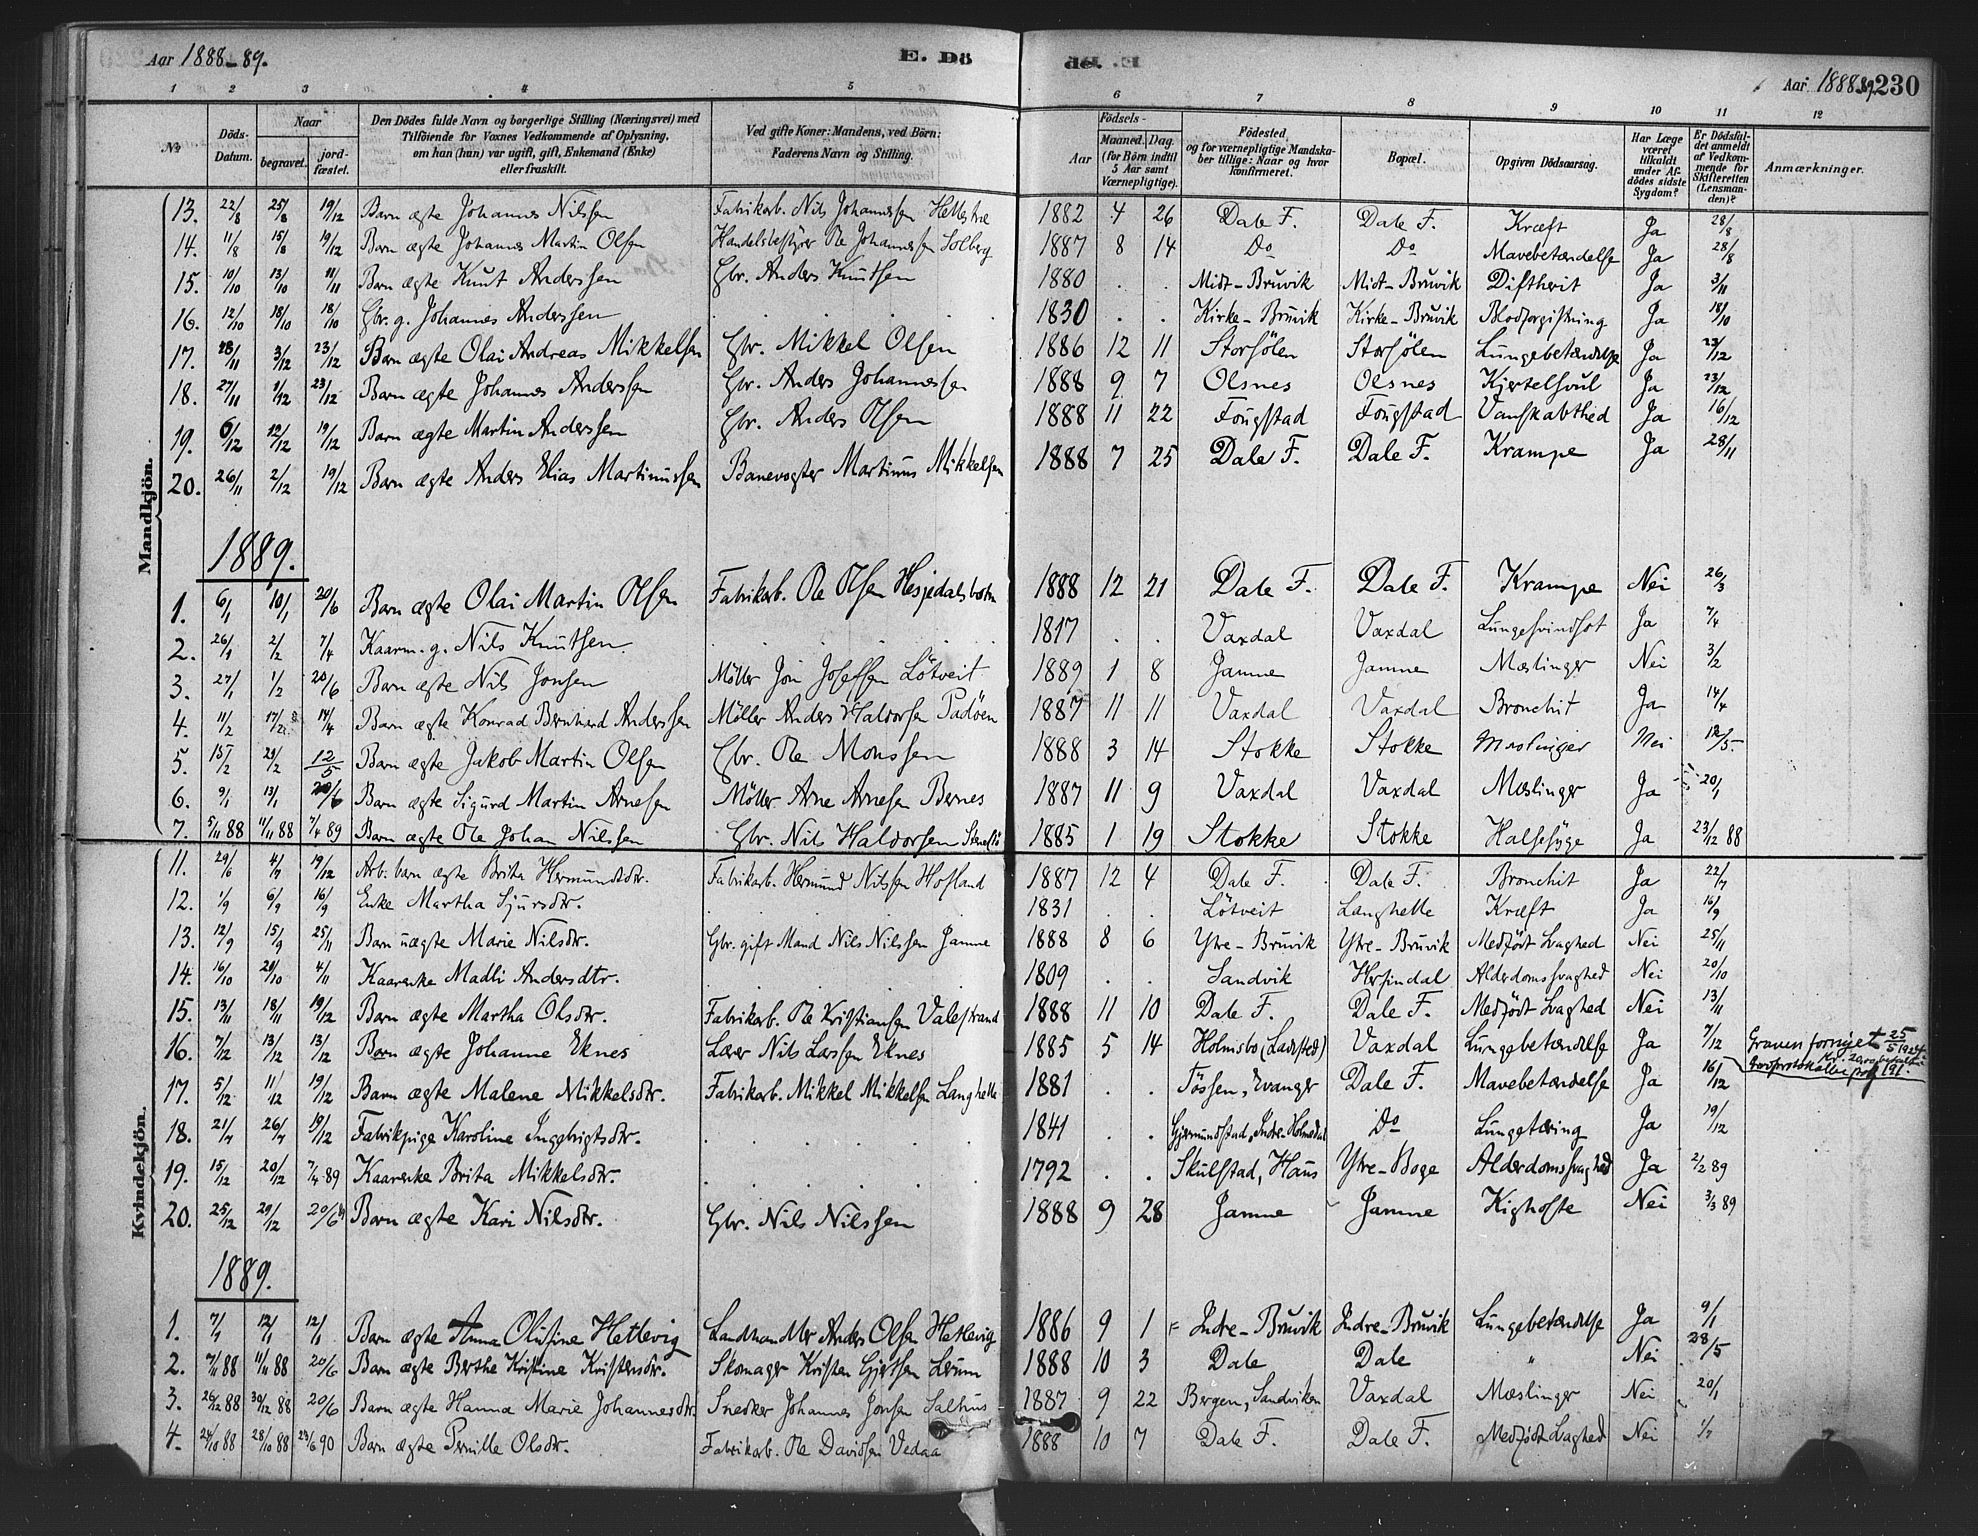 Aar 1888-89.
E. Dö
de. E.
Aar 1888-89. 230
1 2 3 4 5 6 7 8 9 10 11 12
№ Döds-Datum. Naar begravet. jordfæstet. Den Dödes fulde Navn og borgerlige Stilling (Næringsvei) med Tilföiende for Voxnes Vedkommende af Oplysning, om han (hun) var ugift, gift, Enkemand (Enke) eller fraskilt. Ved gifte Koner: Mandens, ved Börn: Faderens Navn og Stilling. Födsels- Aar Maaned. Dag. (for Börn indtil 5 Aar samt Værnepligtige). Födested, og for værnepligtige Mandskaber tillige: Naar og hvor konfirmeret. Bopæl. Opgiven Dödsaarsag. Har Læge været tilkaldt under Afdödes sidste Sygdom? Er Dödsfaldet anmeldt af Vedkommende for Skifteretten (Lensmanden)? Anmærkninger.
Mandkjön.
13. 22/8 25/8 19/12 Barn ægte Johannes Nilsen Fabrikarb. Nils Johannessen Hellestræ 1882 4 26 Dale F. Dale F. Kræft Ja 28/8
14. 11/8 15/8 19/12 Barn ægte Johannes Martin Olsen Handelsbestyrer Ole Johannessen Solberg 1887 8 14 Do Do Mavebetændelse Ja 28/8
15. 10/10 13/10 11/11 Barn ægte Knut Anderssen Gbr. Anders Knutsen 1880 . . Midt-Bruvik Midt-Bruvik Diftherit Ja 3/11
16. 12/10 18/10 18/10 Gbr. g. Johannes Anderssen . 1830 . . Kirke-Bruvik Kirke-Bruvik Blodforgiftning Ja 18/10
17. 28/11 3/12 23/12 Barn ægte Olai Andreas Mikkelsen Gbr. Mikkel Olsen 1886 12 11 Storsölen Storsölen Lungebetændelse Ja 23/12
18. 27/11 1/12 23/12 Barn ægte Johannes Anderssen Gbr. Anders Johannessen 1888 9 7 Olsnes Olsnes Kjertelsvul Ja 23/12
19. 6/12 12/12 19/12 Barn ægte Martin Anderssen Gbr. Anders Olsen 1888 11 22 Fougstad Fougstad Vanskabthed Ja 16/12
20. 26/11 2/12 19/12 Barn ægte Anders Elias Martinussen Banevogter Martinus Mikkelsen 1888 7 25 Dale F. Dale F. Krampe Ja 28/11
1889.
1. 6/1 10/1 20/6 Barn ægte Olai Martin Olsen Fabrikarb. Ole Olsen Hesjedalsbotn 1888 12 21 Dale F. Dale F. Krampe Nei 26/3
2. 26/1 2/2 7/4 Kaarm. g. Nils Knutsen . 1817 . . Vaxdal Vaxdal Lungesvindsot Ja 7/4
3. 27/1 1/2 20/6 Barn ægte Nils Jonsen Möller Jon Josefsen Lötveit 1889 1 8 Jamne Jamne Mæslinger Nei 3/2
4. 11/2 17/2 14/4 Barn ægte Konrad Bernhard Anderssen Möller Anders Haldorsen Padöen 1887 11 11 Vaxdal Vaxdal Bronchit Ja 14/4
5. 15/2 21/2 12/5 Barn ægte Jakob Martin Olsen Gbr. Ole Monssen 1888 3 14 Stokke Stokke Mæslinger Nei 12/5
6. 9/1 13/1 20/6 Barn ægte Sigurd Martin Arnesen Möller Arne Arnesen Bernes 1887 11 9 Vaxdal Vaxdal Mæslinger Ja 20/1
7. 5/11 88 11/11 88 7/4 89 Barn ægte Ole Johan Nilssen Gbr. Nils Haldorsen 1885 1 19 Stokke Stokke Halsesyge Ja 23/12 88
Kvindekjön.
11. 29/6 4/7 19/12 Arb. barn ægte Brita Hermundsdtr. Fabrikarb. Hermund Nilsen Hofland 1887 12 4 Dale F. Dale F. Bronchit Ja 22/7
12. 1/9 6/9 16/9 Enke Martha Sjursdtr. . 1831 . . Lötveit Langhelle Kræft Ja 16/9
13. 12/9 15/9 25/11 Barn uægte Marie Nilsdtr. Gbr. gift Mand Nils Nilssen Jamne 1888 8 6 Ytre-Bruvik Ytre-Bruvik Medfödt Svaghed Nei 25/11
14. 16/10 20/10 4/11 Kaarenke Madli Andersdtr. . 1809 . . Sandvik Herfindal Alderdomssvaghed Nei 20/10
15. 13/11 18/11 19/12 Barn ægte Martha Olsdtr. Fabrikarb. Ole Kristiansen Valestrand 1888 11 10 Dale F. Dale F. Medfödt Svaghed Nei 13/11
16. 7/12 13/12 13/12 Barn ægte Johanne Eknes Lærer Nils Larssen Eknes 1885 5 14 Holmsbo (Ladested) Vaxdal Lungebetændelse Ja 7/12 Graven fornyet 25/5 1924.
17. 5/12 11/12 19/12 Barn ægte Malene Mikkelsdtr. Fabrikarb. Mikkel Mikkelsen Langhelle 1881 . . Fossen, Evanger Dale F. Mavebetændelse Ja 16/12
18. 21/7 26/7 19/12 Fabrikpige Karoline Ingebrigtsdtr. . 1841 . . Gjermundstad, Indre-Holmedal Do Lungetæring Ja 19/12
19. 15/12 20/12 7/4 89 Kaarenke Brita Mikkelsdtr. . 1792 . . Skulstad, Haus Ytre-Boge Alderdomssvaghed Ja 2/2 89
20. 25/12 29/12 20/6 Barn ægte Kari Nilsdtr. Gbr. Nils Nilssen 1888 9 28 Jamne Jamne Kighoste Nei 3/3 89
1889.
1. 7/1 12/1 12/1 Barn ægte Anna Olufine Hetlevig Landhandler Anders Olsen Hetlevig 1886 9 1 Indre-Bruvik Indre-Bruvik Lungebetændelse Ja 9/1
2. 7/11 88 11/11 88 20/6 Barn ægte Berthe Kristine Kristensdtr. Skomager Kristen Gjertsen Lerum 1888 10 3 Dale Dale " Nei 28/5
3. 26/12 88 30/12 88 20/6 Barn ægte Hanna Marie Johannesdtr. Snedker Johannes Jonsen Salhus 1887 9 22 Bergen, Sandviken Vaxdal Mæslinger Nei 20/1
4. 24/10 88 28/10 88 29/6 90 Barn ægte Pernille Olsdtr. Fabrikarb. Ole Davidsen Vedaa 1888 10 7 Dale F. Dale F. Medfödt Svaghed Nei 1/7